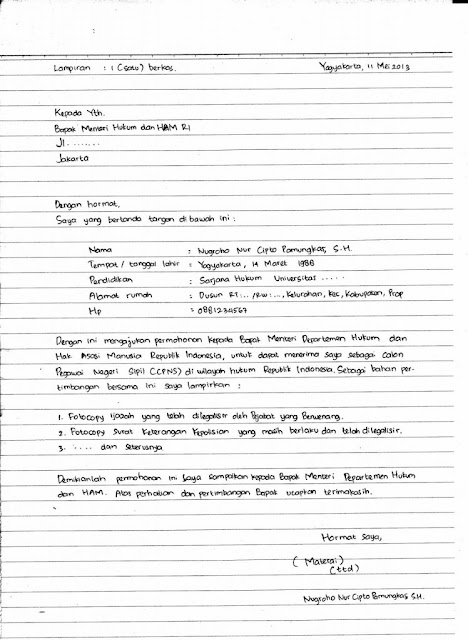 Lampiran : 1 (satu) berkas. Yogyakarta, 11 MEI 2013
Kepada Yth.
Bapak Menteri Hukum dan HAM RI
Jl. ........
Jakarta
Dengan hormat,
Saya yang bertanda tangan di bawah ini :
Nama : Nugroho Nur Cipto Pamungkas, S.H.
Tempat / tanggal lahir : Yogyakarta, 14 Maret 1988
Pendidikan : Sarjana Hukum Universitas .....
Alamat rumah : Dusun RT:.. /RW:..., Kelurahan, Kec, Kabupaten, Prop
Hp : 0881234567
Dengan ini mengajukan permohonan kepada Bapak Menteri Departemen Hukum dan
Hak Asasi Manusia Republik Indonesia, untuk dapat menerima saya sebagai calon
Pegawai Negeri Sipil (CPNS) di wilayah hukum Republik Indonesia. Sebagai bahan per-
timbangan bersama ini saya lampirkan :
1. Fotocopy ijasah yang telah dilegalisir oleh Pejabat yang Berwenang.
2. Fotocopy Surat Keterangan Kepolisian yang masih berlaku dan telah dilegalisir.
3. .... dan seterusnya
Demikianlah permohonan ini saya sampaikan kepada Bapak Menteri Departemen Hukum
dan HAM. Atas perhatian dan pertimbangan Bapak ucapkan terimakasih.
Hormat saya,
( Materai )
(ttd)
Nugroho Nur Cipto Pamungkas, S.H.